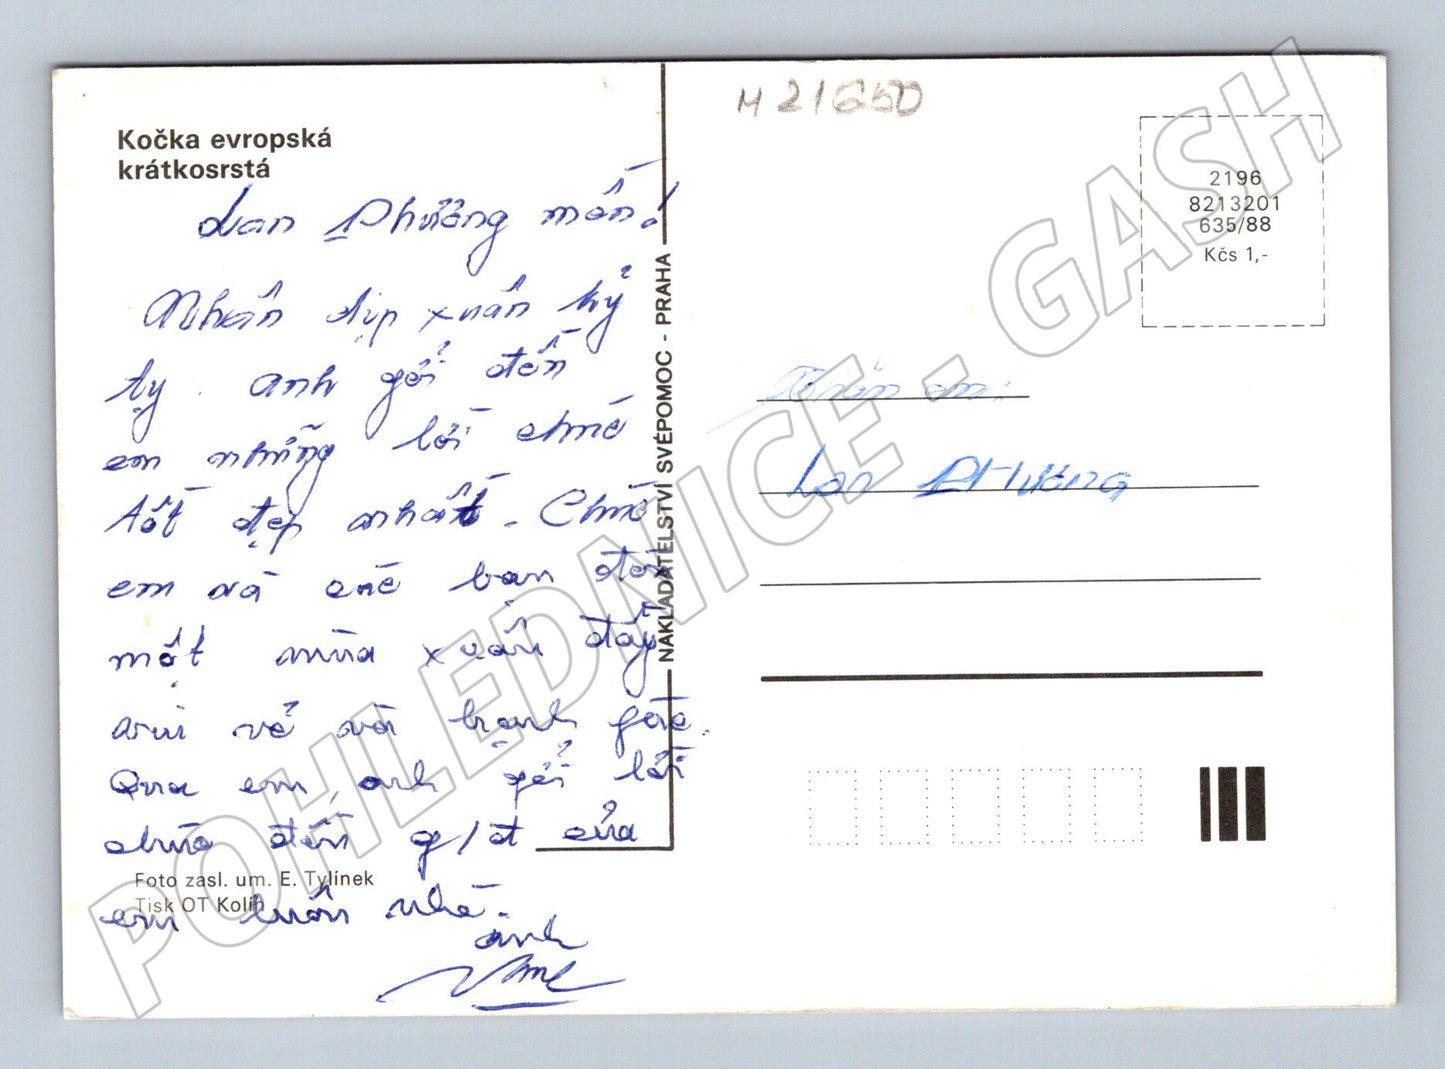 M 21650
Kočka evropská
krátkosrstá
Lan Phương mến!
Nhân dịp xuân kỷ
tỵ. anh gởi đến
em những lời chúc
tốt đẹp nhất. Chúc
em và các bạn đón
một mùa xuân đầy
vui vẻ và hạnh phúc.
Qua em, anh gởi lời
chúc đến g/đ của
em luôn nhé.
anh
Foto zasl. um. E. Tylínek
Tisk OT Kolín
NAKLADATELSTVÍ SVÉPOMOC - PRAHA
2196
8213201
635/88
Kčs 1,-
em:
Lan PHương
POHLEDNICE - GASH